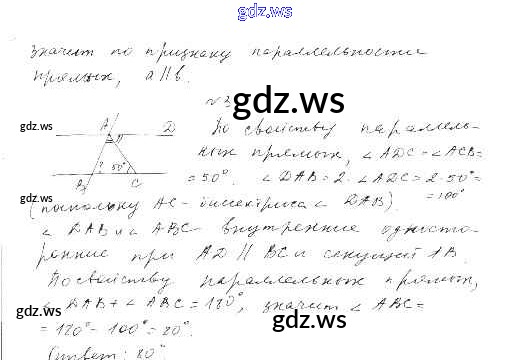 gdz.ws
значит по признаку параллельности
прямых, a∥b.
№3
gdz.ws
gdz.ws
gdz.ws
A D
? 50°
B C
По свойству параллель-
ных прямых, ∠ADC = ∠ACB =
= 50°. ∠DAB = 2·∠ADC = 2·50° =
= 100°
(поскольку AC - биссектриса ∠DAB).
∠DAB и ∠ABC - внутренние односто-
ронние при AD∥BC и секущей AB.
По свойству параллельных прямых,
∠DAB + ∠ABC = 180°, значит ∠ABC =
= 180° - 100° = 80°.
Ответ: 80°
gdz.ws
gdz.ws
gdz.ws
gdz.ws
gdz.ws